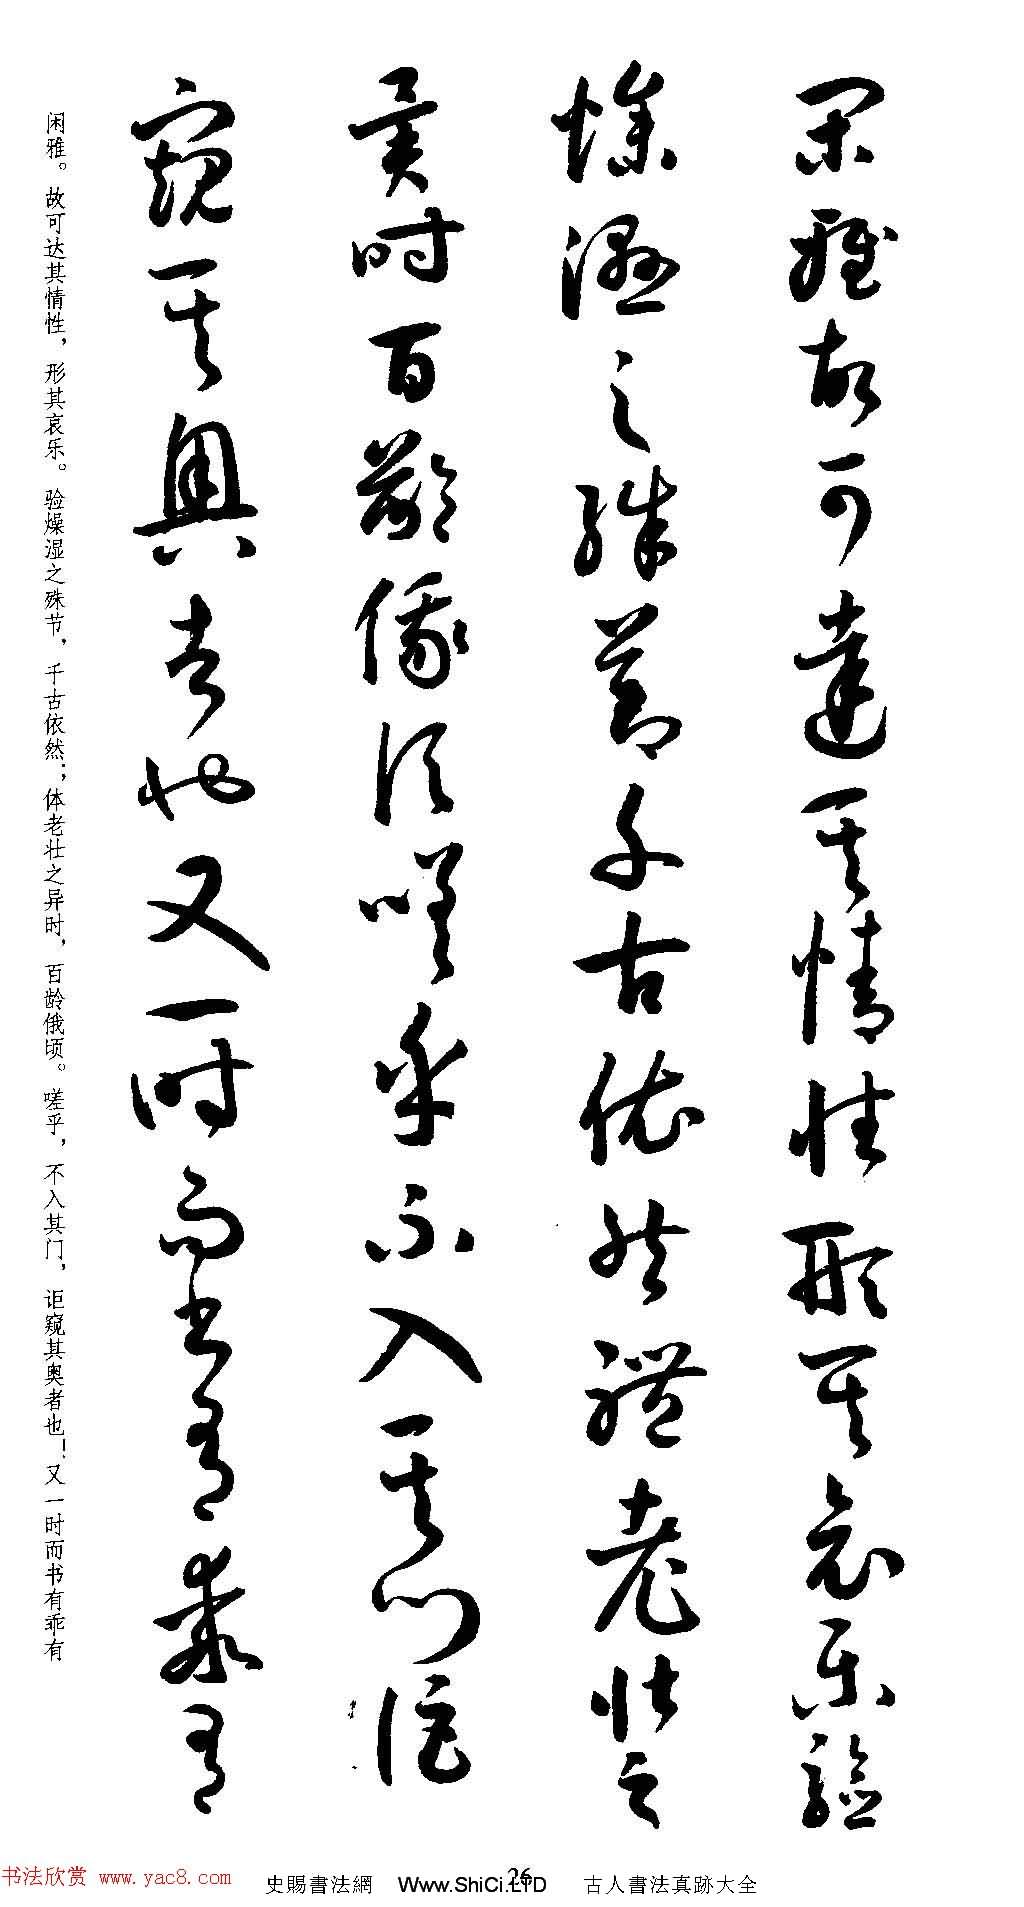 闲雅故可達其情性形其哀乐驗
燥濕之殊節千古依然體老壮之
異时百齡俄頃嗟乎不入其门詎
窺其奧者也又一时而书有乖有
闲雅。故可达其情性，形其哀乐。验燥湿之殊节，千古依然；体老壮之异时，百龄俄顷。嗟乎，不入其门，讵窥其奥者也！又一时而书有乖有
26
书法欣赏 www.yac8.com
史賜書法網 Www.ShiCi.LTD 古人書法真跡大全